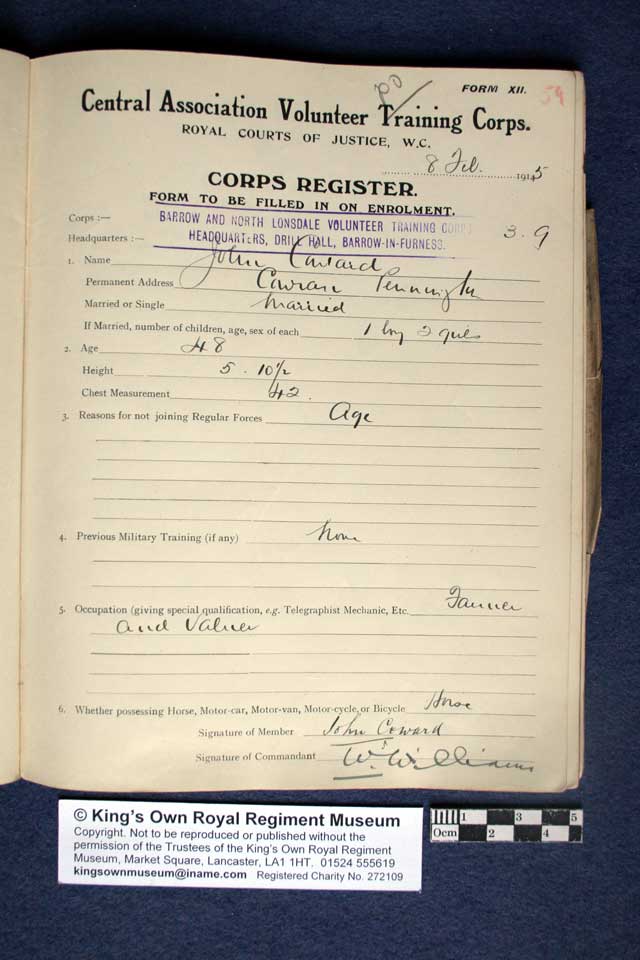 FORM XII.
59
Central Association Volunteer Training Corps.
ROYAL COURTS OF JUSTICE, W.C.
8 Feb. 1915
CORPS REGISTER.
FORM TO BE FILLED IN ON ENROLMENT.
Corps :— BARROW AND NORTH LONSDALE VOLUNTEER TRAINING CORPS
Headquarters :— HEADQUARTERS, DRILL HALL, BARROW-IN-FURNESS. 3.9
1. Name John Coward
Permanent Address Cowran Pennington
Married or Single Married
If Married, number of children, age, sex of each 1 boy 2 girls
2. Age 48
Height 5 . 10½
Chest Measurement 42.
3. Reasons for not joining Regular Forces Age
4. Previous Military Training (if any) None
5. Occupation (giving special qualification, e.g. Telegraphist Mechanic, Etc. Farmer
and Valuer
6. Whether possessing Horse, Motor-car, Motor-van, Motor-cycle, or Bicycle Horse
Signature of Member John Coward
Signature of Commandant W. Williams
© King's Own Royal Regiment Museum
Copyright. Not to be reproduced or published without the
permission of the Trustees of the King's Own Royal Regiment
Museum, Market Square, Lancaster, LA1 1HT. 01524 555619
kingsownmuseum@iname.com Registered Charity No. 272109
1 3 5
0cm 2 4